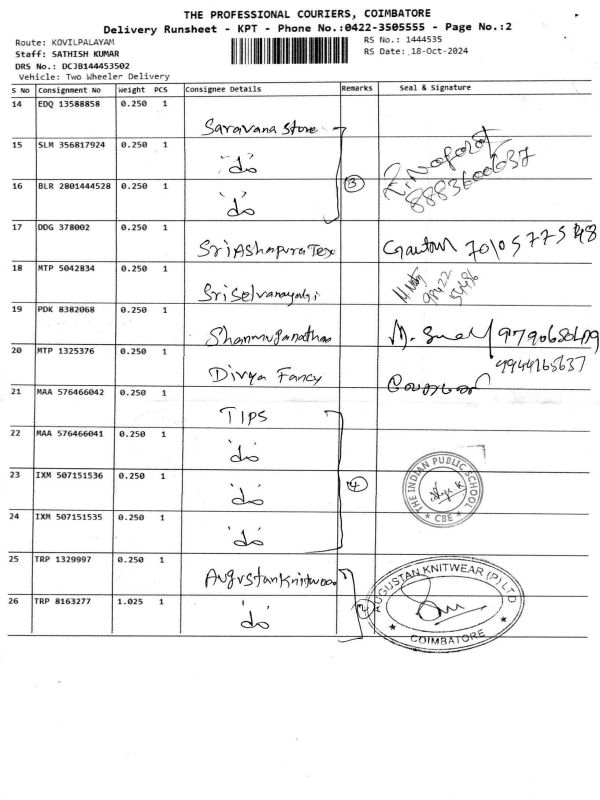 THE PROFESSIONAL COURIERS, COIMBATORE
Delivery Runsheet - KPT - Phone No.:0422-3505555 - Page No.:2
Route: KOVILPALAYAM
RS No.: 1444535
Staff: SATHISH KUMAR
RS Date: 18-Oct-2024
DRS No.: DCJB144453502
Vehicle: Two Wheeler Delivery
S No Consignment No Weight PCS Consignee Details Remarks Seal & Signature
14 EDQ 13588858 0.250 1 Saravana Store
15 SLM 356817924 0.250 1 "do"
16 BLR 2801444528 0.250 1 "do" 3 8883600637
17 DDG 378002 0.250 1 Sri Ashapura Tex Gautam
18 MTP 5042834 0.250 1 Sri Selvanayagi 98422
19 PDK 8382068 0.250 1 Shanmuganathan
20 MTP 1325376 0.250 1 Divya Fancy 9944165637
21 MAA 576466042 0.250 1 TIPS
22 MAA 576466041 0.250 1 "do"
23 IXM 507151536 0.250 1 "do" 4 THE INDIAN PUBLIC SCHOOL * CBE *
24 IXM 507151535 0.250 1 "do"
25 TRP 1329997 0.250 1 Augustan Knitwear
26 TRP 8163277 1.025 1 "do" 2 AUGUSTAN KNITWEAR (P) LTD * COIMBATORE *